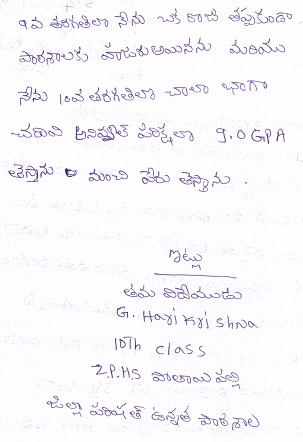 9వ తరగతిలో నేను ఒక రోజు తప్పకుండా
పాఠశాలకు హాజరుఅయినను మరియు
నేను 10వ తరగతిలో చాలా బాగా
చదివి అనివ్వల్ పరీక్షలో 9.0 GPA
తెస్తాను మంచి పేరు తెస్తాను.
ఇట్లు
తమ విదేయుడు
G. Hari Krishna
10th class
Z.P.HS పోలాయిపల్లి
జిల్లా పరిషత్ ఉన్నత పాఠశాల